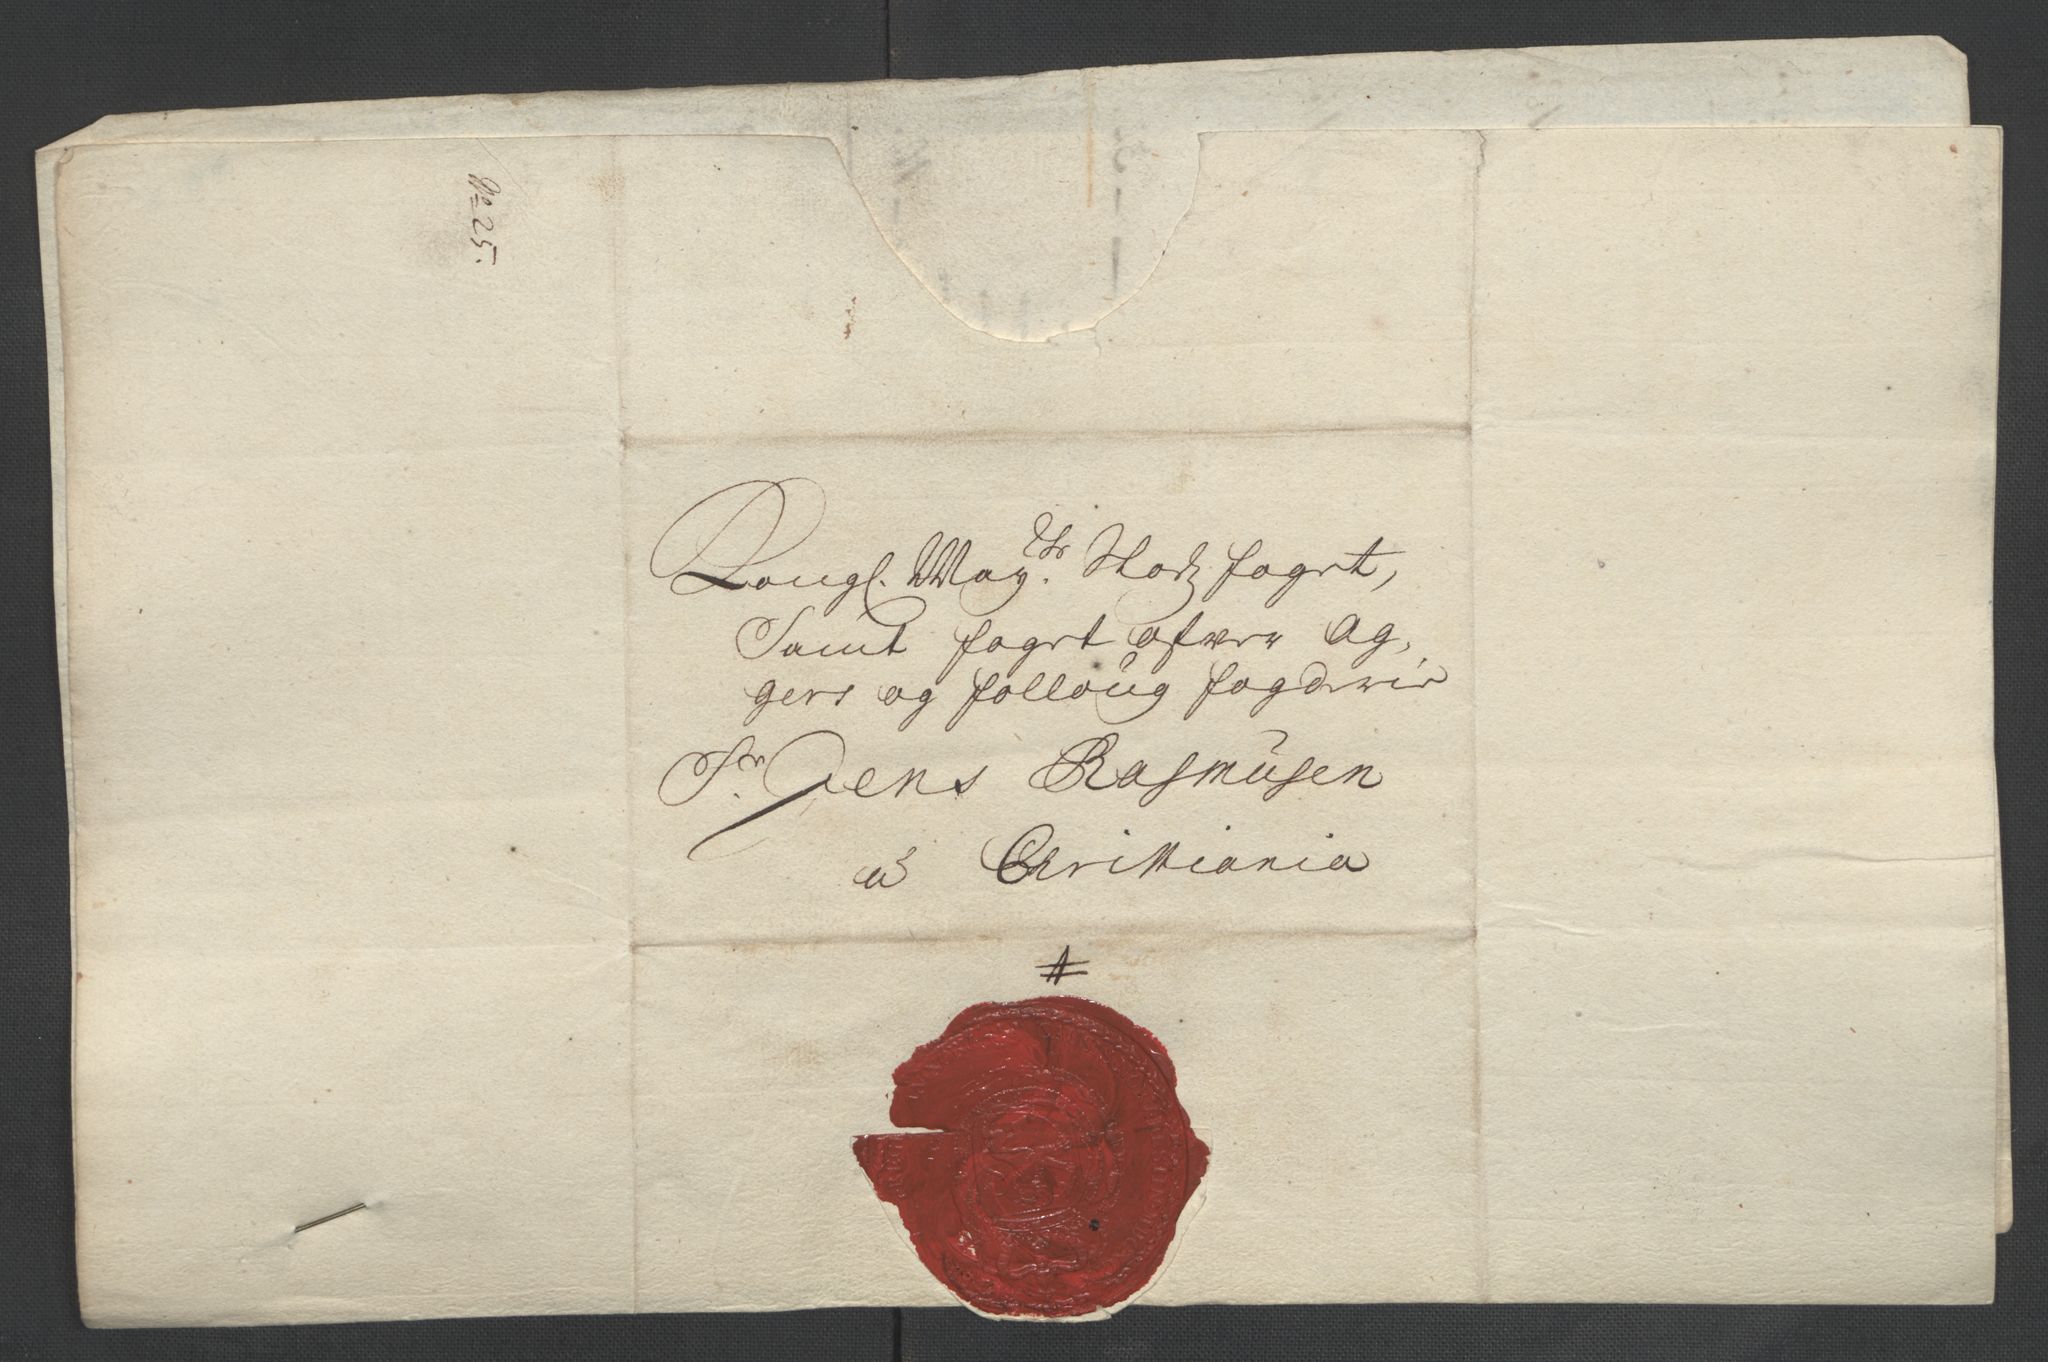 No 25.
Kongl. May.ts Stadz foget,
Samt foget ofver Ag,
gers og folloug fogderie
Sr. Jens Rasmusen
a Christiania